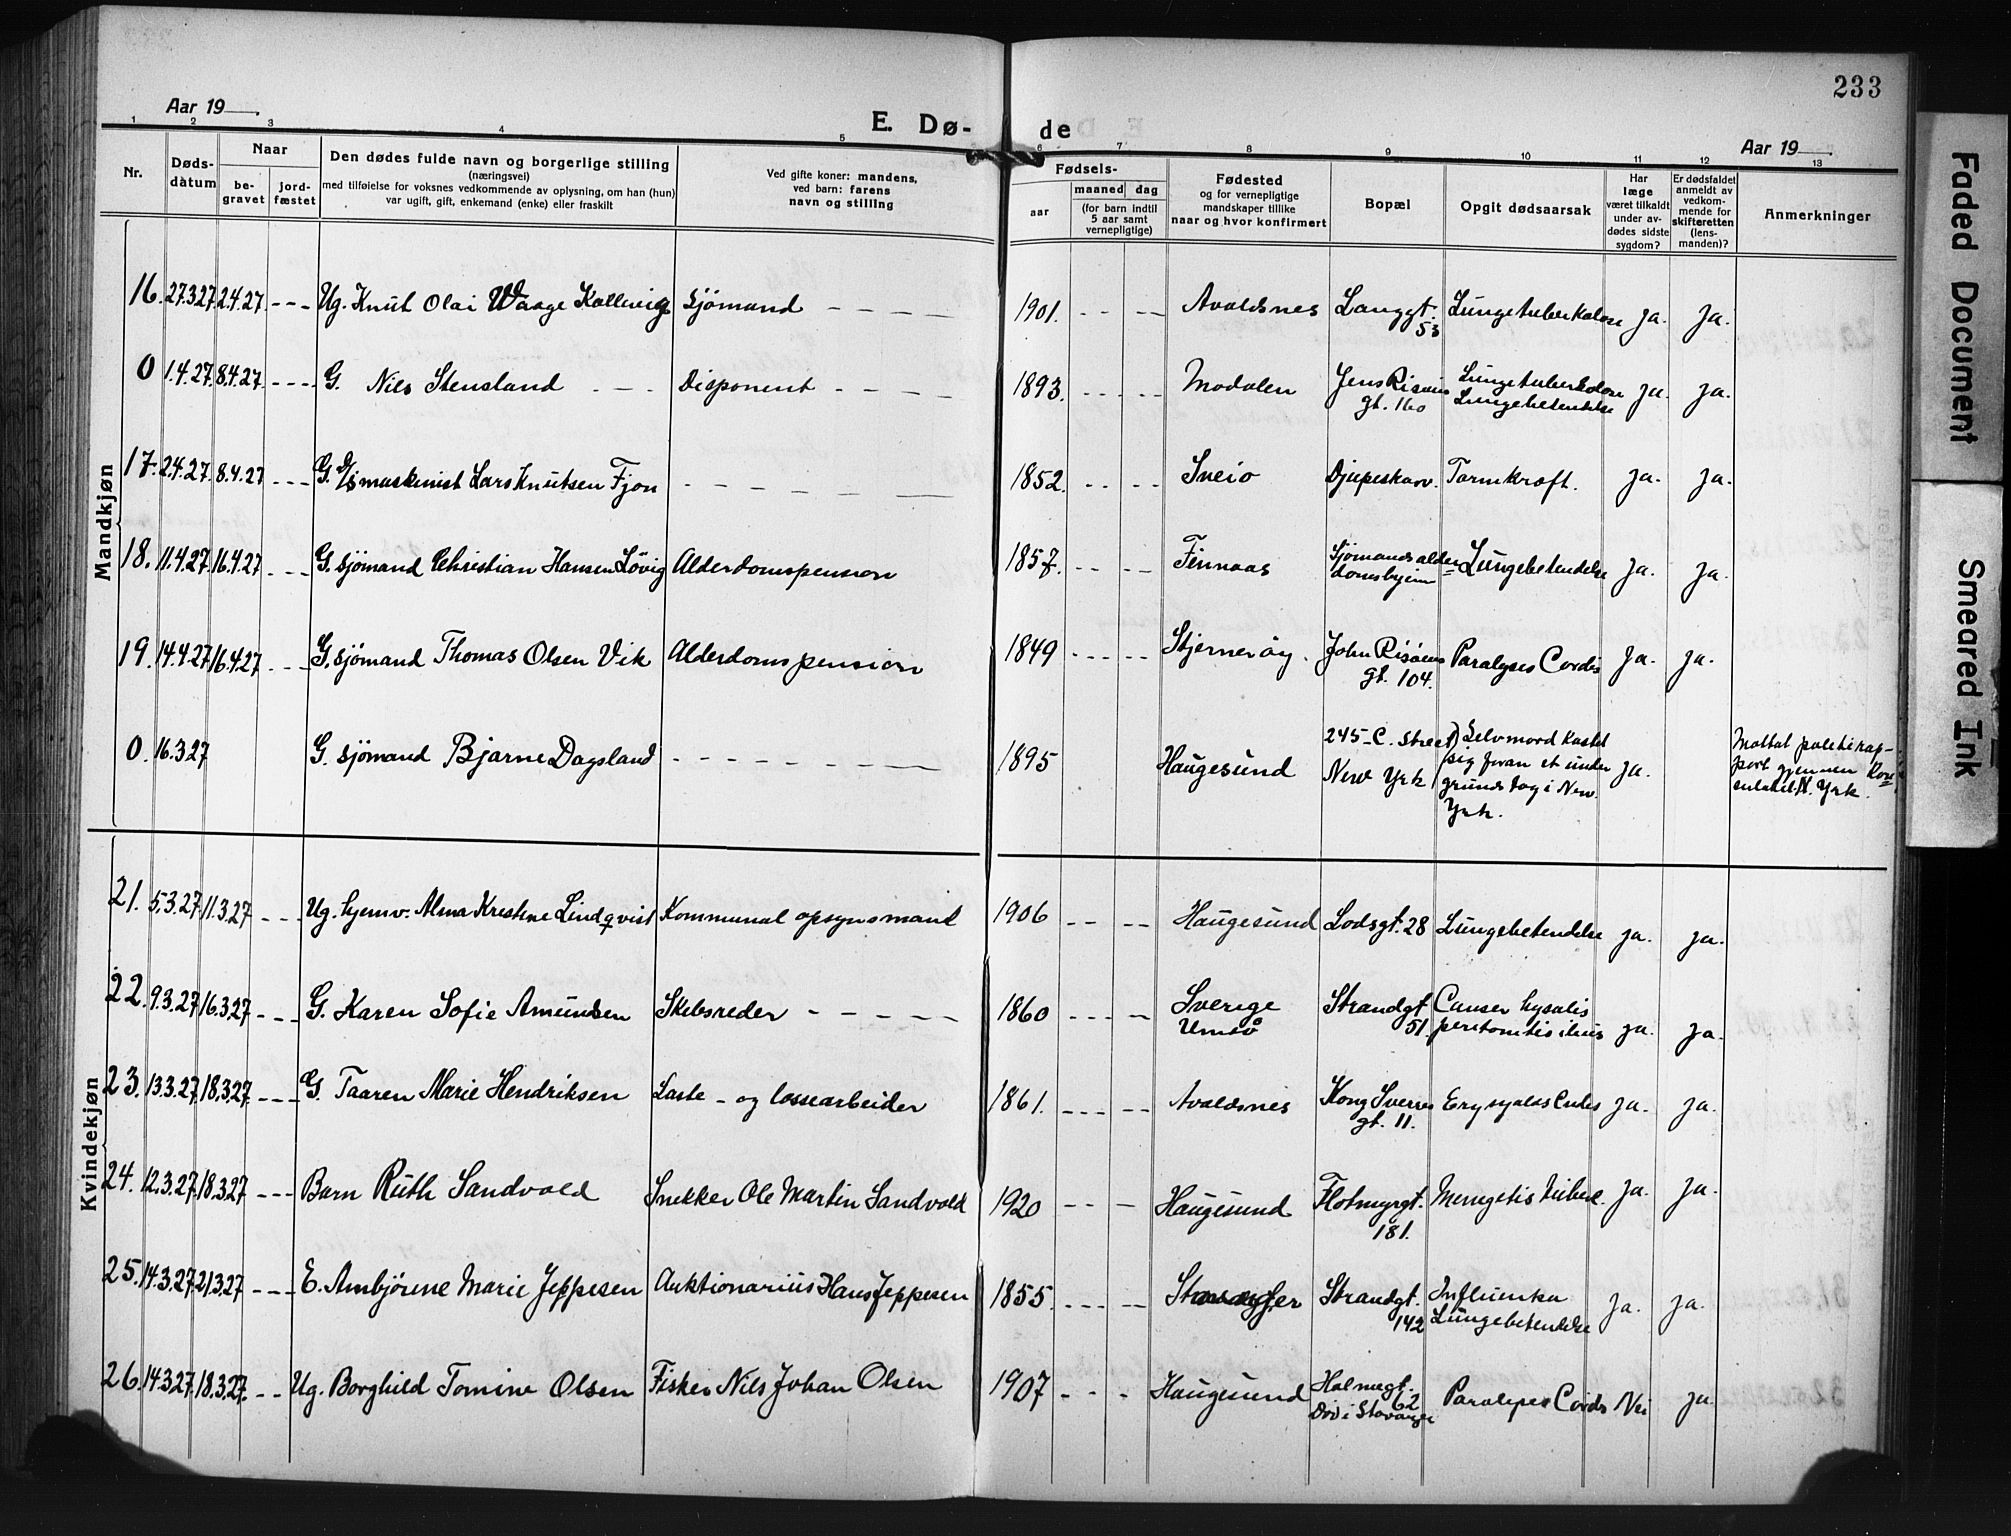 233
Aar 19
E. Dø- de
Aar 19
1 2 3 4 5 6 7 8 9 10 11 12 13
Nr.
Døds-
datum
Naar
be-
gravet
jord-
fæstet
Den dødes fulde navn og borgerlige stilling
(næringsvei)
med tilføielse for voksnes vedkommende av oplysning, om han (hun)
var ugift, gift, enkemand (enke) eller fraskilt
Ved gifte koner: mandens,
ved barn: farens
navn og stilling
Fødsels-
aar
maaned dag
(for barn indtil
5 aar samt
vernepligtige)
Fødested
og for vernepligtige
mandskaper tillike
naar og hvor konfirmert
Bopæl
Opgit dødsaarsak
Har
læge
været tilkaldt
under av-
dødes sidste
sygdom?
Er dødsfaldet
anmeldt av
vedkom-
mende for
skifteretten
(lens-
manden)?
Anmerkninger
Mandkjøn
16. 27.3.27 2.4.27 --- Ug. Knut Olai Waage Kallevig Sjömand - - - - 1901. -- -- Avaldsnes Langgt. 53 Lungetuberkulose ja. ja.
0 1.4.27. 8.4.27 ---- G. Nils Stensland - - - Disponent - - - - 1893. -- -- Modalen Jens Risøens gt. 160 Lungetuberkulose Lungebetendelse ja. ja.
17. 2.4.27. 8.4.27 --- G. maskinist Lars Knutsen Fjon - - - - - 1852. -- -- Sveio Djupeskar. Tarmkræft. ja. ja.
18. 11.4.27 16.4.27 --- G. sjömand Christian Hansen Lövig Alderdomspension 1857. -- -- Finnaas Sjømandsalder= domshjem Lungebetendelse ja. ja.
19. 14.4.27 16.4.27 --- G. sjömand Thomas Olsen Vik Alderdomspension 1849 --- -- Stjernerøy. John Risøens gt. 104. Paralyses Cordis ja. ja.
0. 16.3.27 G. sjömand Bjarne Dagsland - - - - - - 1895 Haugesund 245-C. Street New Yrk Selvmord kastet sig foran et under grunds tog i New Yrk. ja. Mottat politirap- port gjennem Kon= sulatet N. Yrk.
Kvindekjøn
21. 5.3.27 11.3.27 --- Ug. hjemv. Alma Kristine Lindqvist Kommunal opsynsmand 1906 -- -- Haugesund Lodsgt. 28 Lungebetendelse ja. ja.
22. 9.3.27 16.3.27 --- G. Karen Sofie Amundsen Skibsreder - - - - - 1860 --- -- Sverige Strandgt 51. ja. ja.
23. 13.3.27 18.3.27 --- G. Taaren Marie Hendriksen Laste - og lossearbeider 1861. --- -- Avaldsnes Kong Sverres gt. 11. ja. ja.
24. 12.3.27 18.3.27 --- Barn Ruth Sandvold Snekker Ole Martin Sandvold 1920 -- - Haugesund Flotmyrgt. 181. ja. ja.
25. 14.3.27 21.3.27 --- E. Ambjörene Marie Jeppesen Auktionarius Hans Jeppesen 1855. --- -- Stavanger Strandgt. 142 Influenka Lungebetendelse ja. ja.
26. 14.3.27 18.3.27. -- Ug. Borghild Tomine Olsen Fisker Nils Johan Olsen 1907 - - - Haugesund Holmegt. 62 Död i Stavanger Paralyses Cordis Nei ja.
Faded Document
Smeared Ink